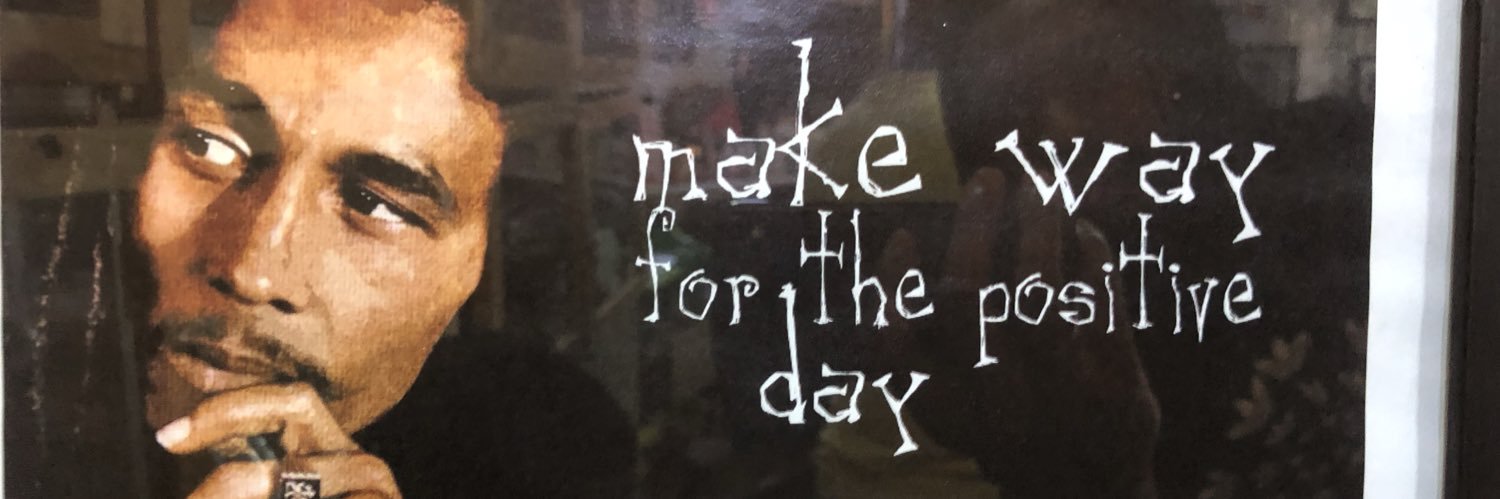 make way
for the positive
day